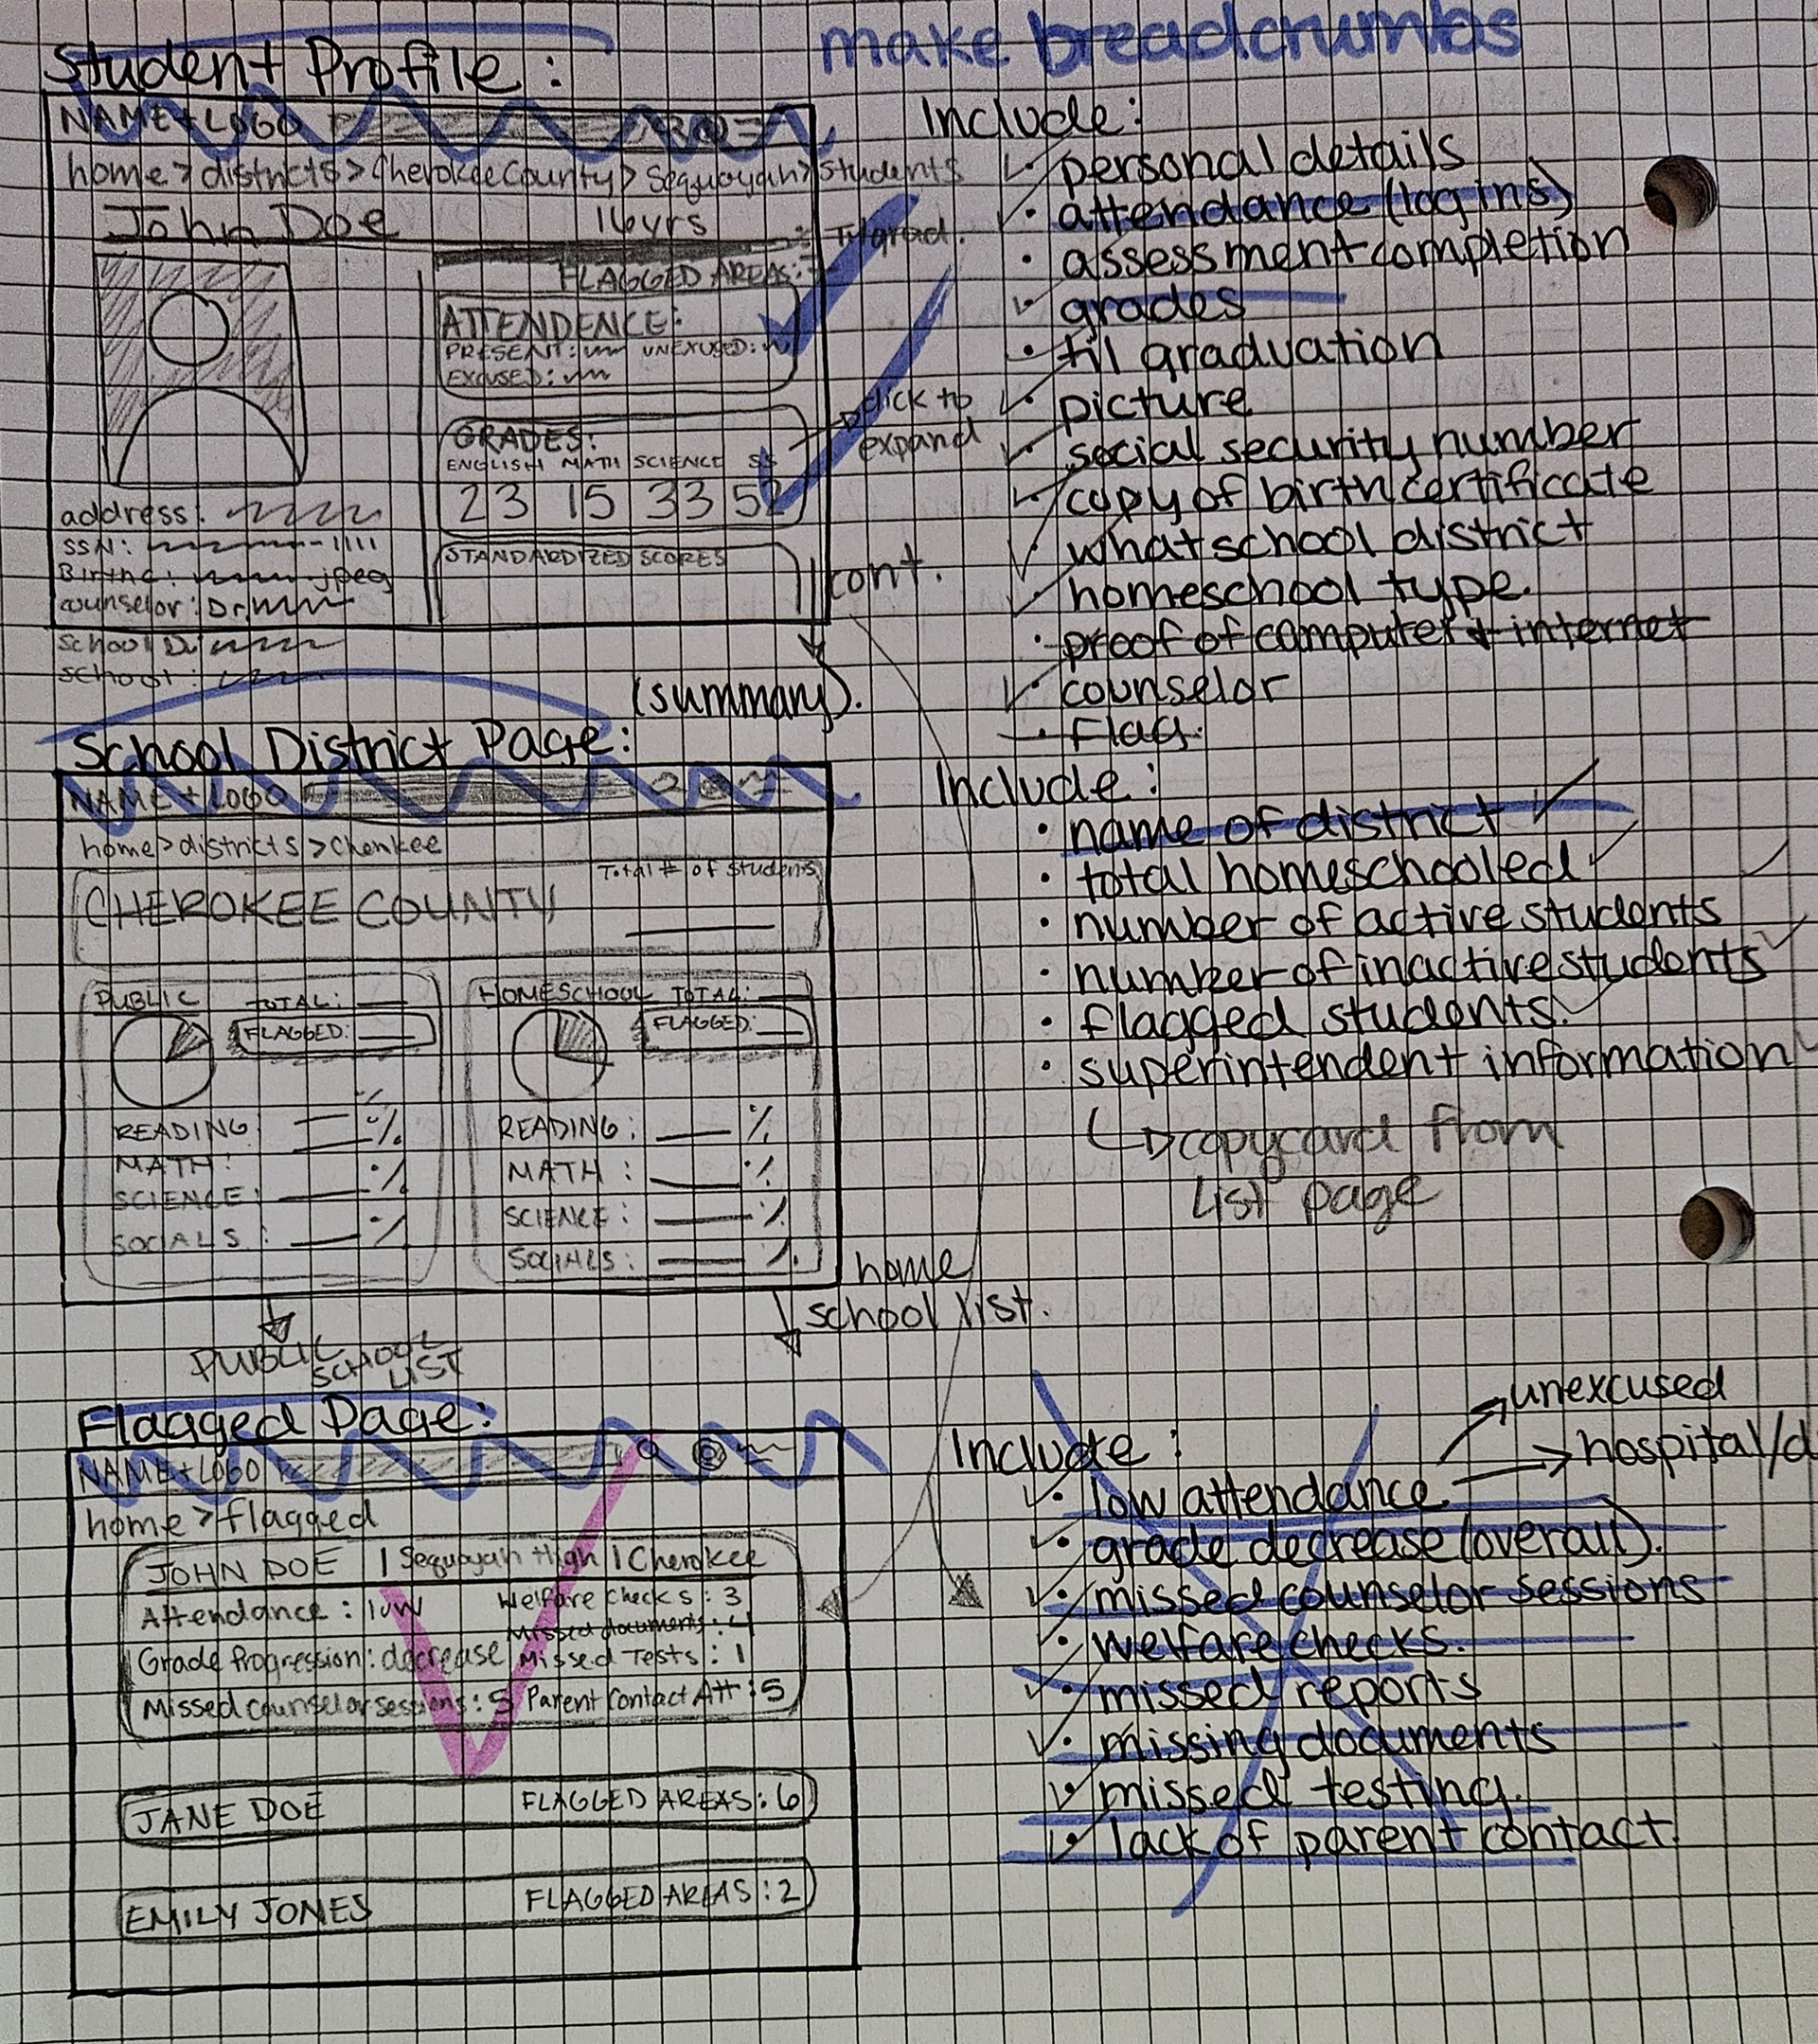 make breadcrumbs
Student Profile:
NAME + LOGO
home > districts > Cherokee County > Sequoyah > students
John Doe 16yrs
grad.
FLAGGED AREAS:
ATTENDENCE:
PRESENT: UNEXUSED:
EXCUSED:
GRADES:
click to
expand
ENGLISH MATH SCIENCE SS
23 15 33 52
STANDARDIZED SCORES
cont.
address:
SSN: -1111
Birth c: .jpeg
counselor: Dr.
School D:
School:
(summary).
Include:
• personal details
• attendance (log ins)
• assessment completion
• grades
• til graduation
• picture
• social security number
• copy of birth certificate
• what school district
• homeschool type.
• proof of computer + internet
• counselor
• flag.
School District Page:
NAME + LOGO
home > districts > Cherokee
Total # of Students
CHEROKEE COUNTY
PUBLIC TOTAL:
FLAGGED:
READING: %
MATH: %
SCIENCE: %
SOCIALS: %
HOMESCHOOL TOTAL:
FLAGGED:
READING: %
MATH: %
SCIENCE: %
SOCIALS: %
PUBLIC
SCHOOL
LIST
home
school list.
Include:
• name of district
• total homeschooled
• number of active students
• number of inactive students
• flagged students.
• superintendent information
copy card from
list page
Flagged Page:
NAME + LOGO
home > flagged
JOHN DOE | Sequoyah High | Cherokee
Attendance: low Welfare Checks: 3
Missed documents: 4
Grade Progression: decrease Missed Tests: 1
Missed counselor sessions: 5 Parent Contact Att: 5
JANE DOE FLAGGED AREAS: 6
EMILY JONES FLAGGED AREAS: 2
Include:
unexcused
hospital/d
• low attendance
• grade decrease (overall).
• missed counselor sessions
• welfare checks.
• missed reports
• missing documents
• missed testing.
• lack of parent contact.